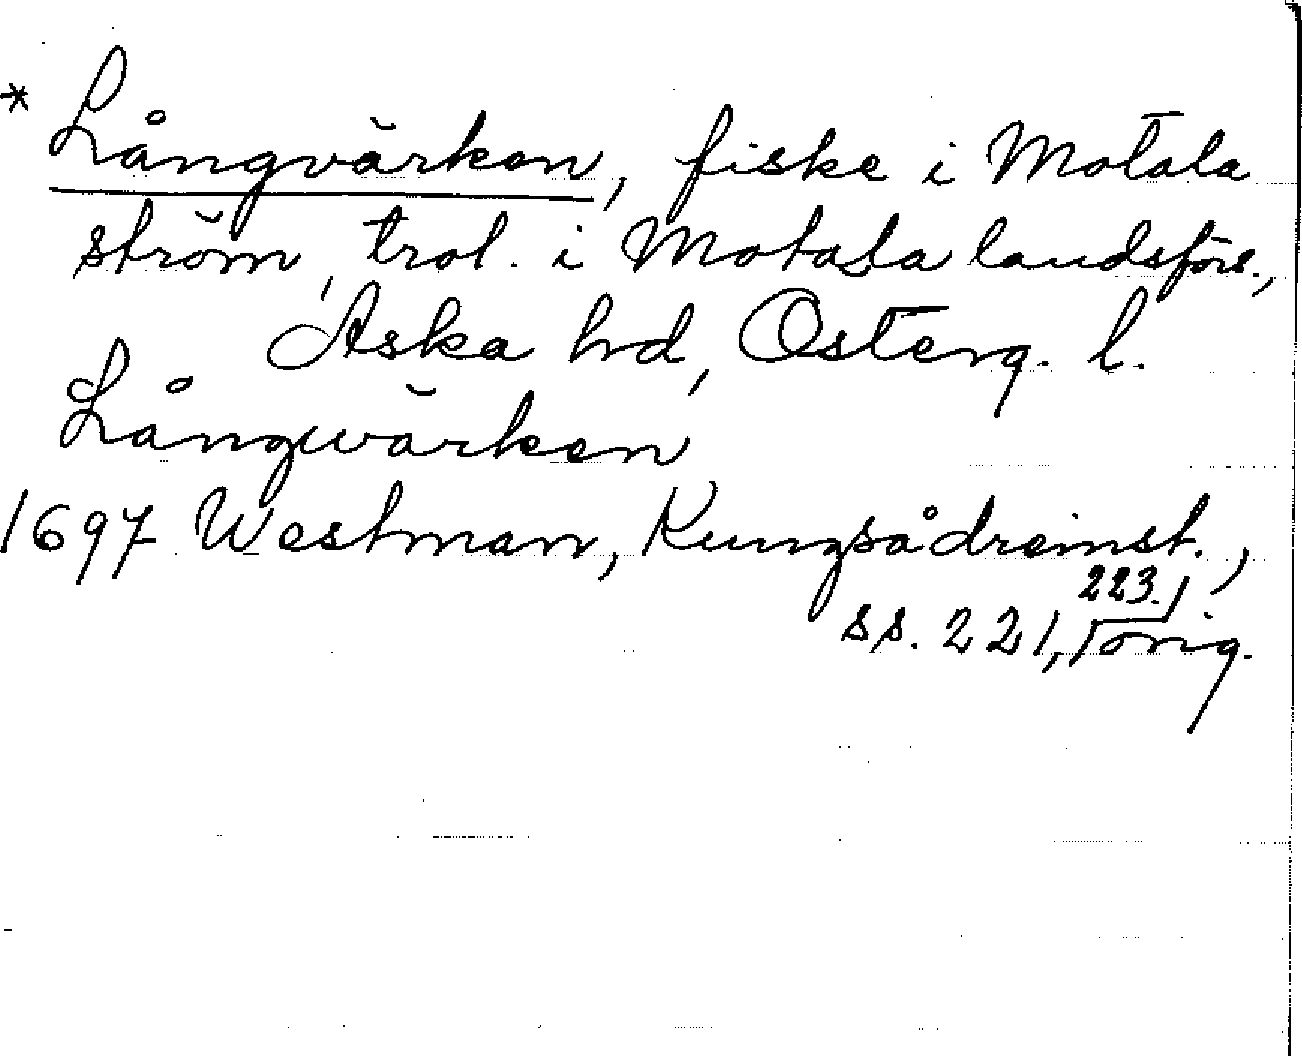 * Långvärken, fiske i Motala
ström, trol. i Motala landsförs.,
Aska hd, Österg. l.
Långwärken
1697 Westman, Kungsådreinst.,
ss. 221, 223. orig.